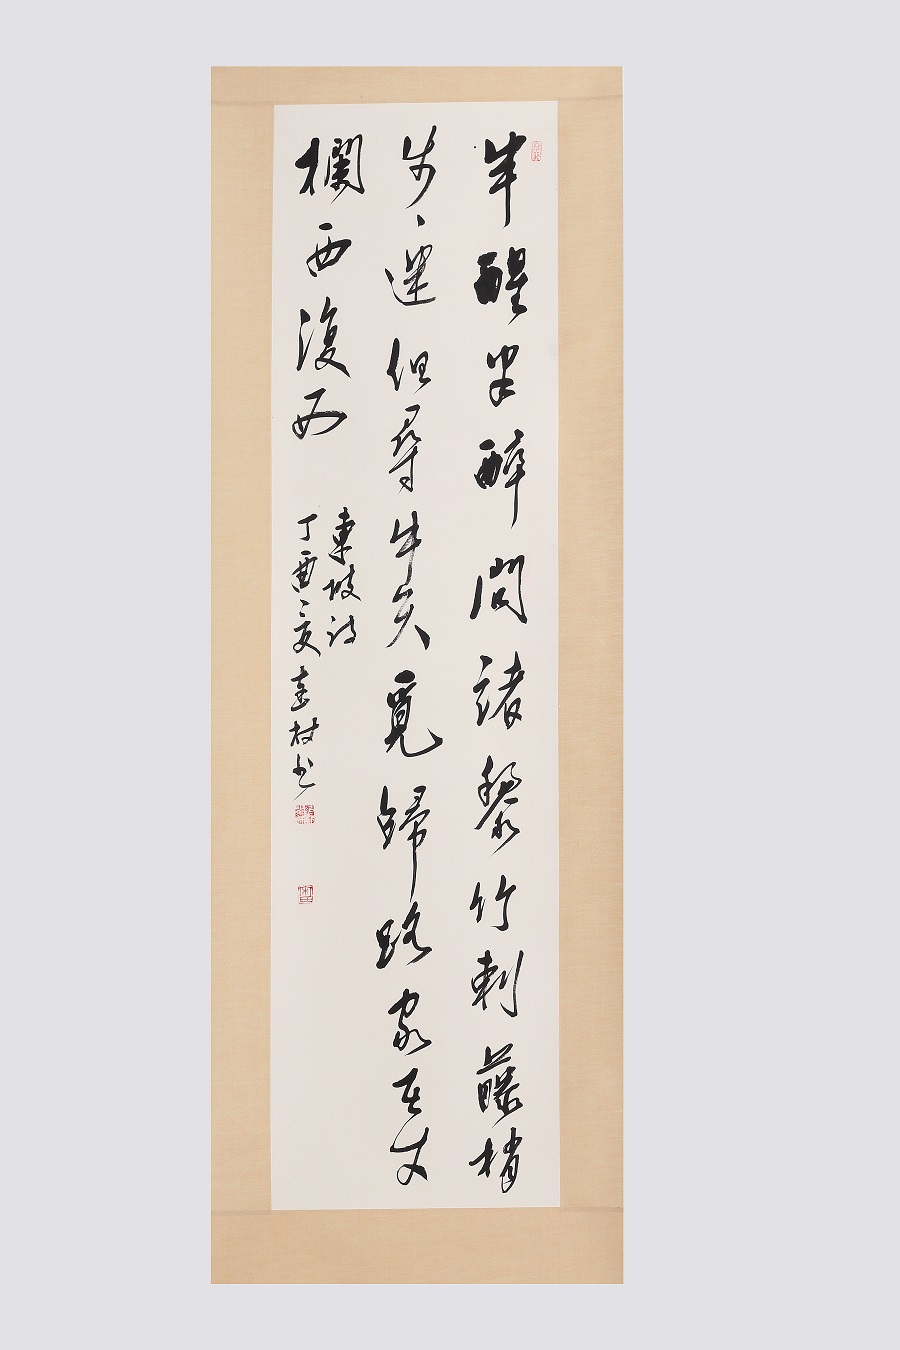 半醒半醉問諸黎竹刺藤梢
步、迷但尋牛矢覓歸路家在牛
欄西復西
東坡詩
丁酉之夏
書